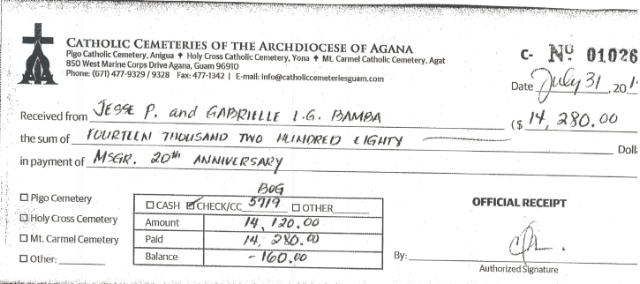 CATHOLIC CEMETERIES OF THE ARCHDIOCESE OF AGANA
Pigo Catholic Cemetery, Anigua ✝ Holy Cross Catholic Cemetery, Yona ✝ Mt. Carmel Catholic Cemetery, Agat
850 West Marine Corps Drive Agana, Guam 96910
Phone: (671) 477-9329 / 9328 Fax: 477-1342 | E-mail: info@catholiccemeteriesguam.com
C- Nº 01026
Date July 31, 201
Received from JESSE P. and GABRIELLE L.G. BAMBA ($ 14,280.00
the sum of FOURTEEN THOUSAND TWO HUNDRED EIGHTY Doll
in payment of MSGR. 20th ANNIVERSARY
BOG
☐ Pigo Cemetery
☐ Holy Cross Cemetery
☐ Mt. Carmel Cemetery
☐ Other:
☐ CASH ☑ CHECK/CC 5719 ☐ OTHER
Amount 14,120.00
Paid 14,280.00
Balance -160.00
OFFICIAL RECEIPT
By:
Authorized Signature